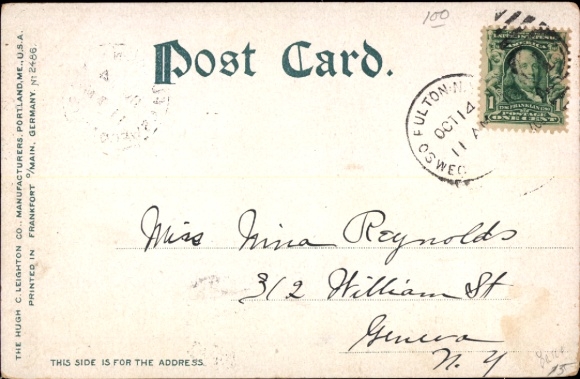 100
Post Card.
FULTON-N.Y.
OCT 14
11 AM
OSWEGO
AMERICA
FRANKLIN
1
1
POSTAGE
ONE CENT
Miss Nina Reynolds
312 William St
Geneva
N. Y
THIS SIDE IS FOR THE ADDRESS.
THE HUGH C. LEIGHTON CO., MANUFACTURERS, PORTLAND, ME., U.S.A.
PRINTED IN FRANKFORT O/MAIN, GERMANY. No 2486.